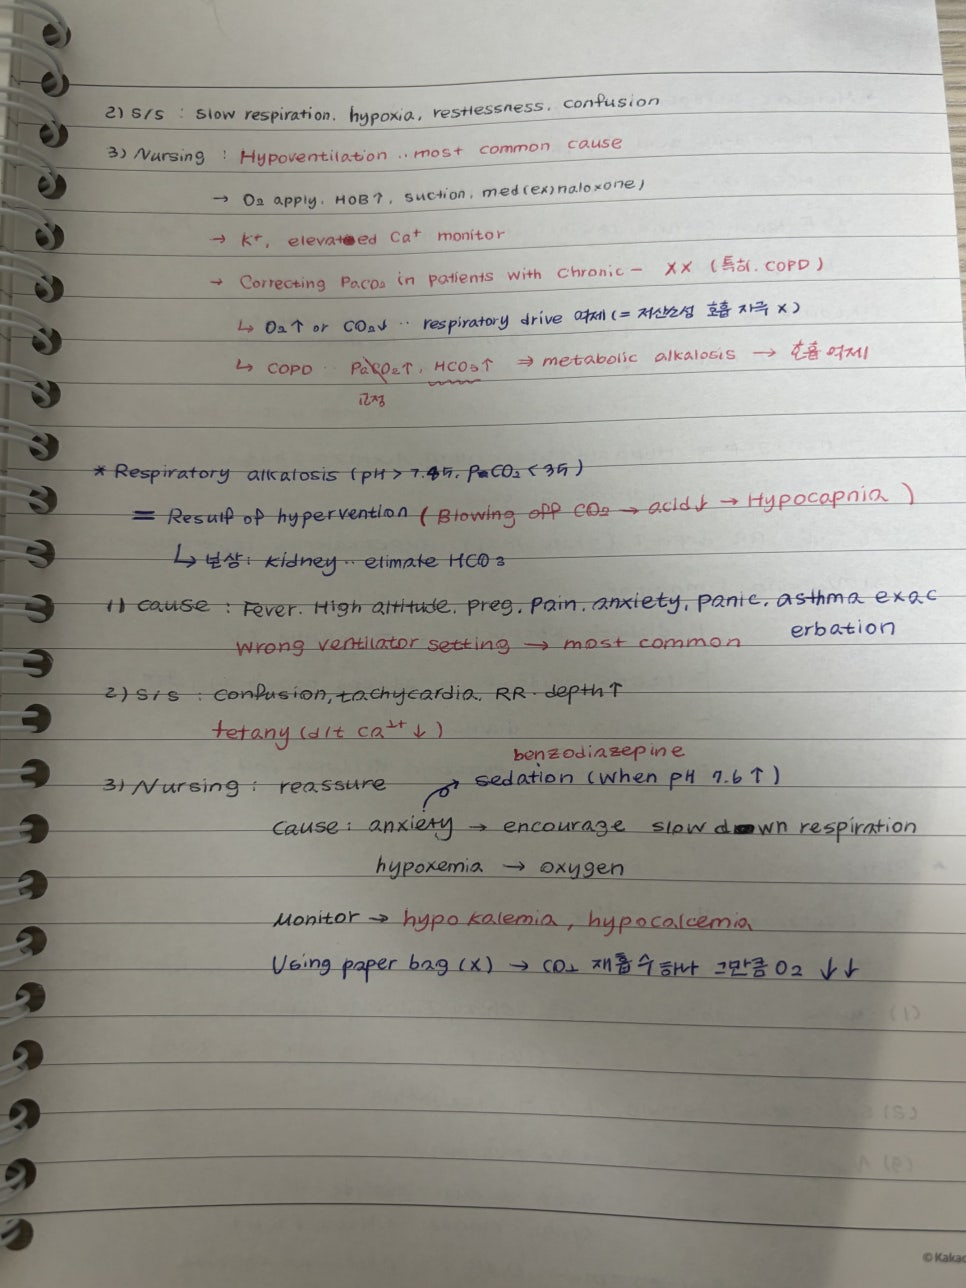 2) S/S : Slow respiration. hypoxia, restlessness. confusion
3) Nursing : Hypoventilation ·· most common cause
→ O2 apply. HOB↑. suction. med(ex)naloxone)
→ K+, elevated Ca+ monitor
→ Correcting PaCO2 in patients with Chronic - XX (특히. COPD)
↳ O2↑ or CO2↓ ·· respiratory drive 억제 (= 저산소성 호흡 자극 X)
↳ COPD ·· PaCO2↑. HCO3↑ ⇒ metabolic alkalosis → 호흡억제
교정
* Respiratory alkalosis (pH > 7.45. PaCO2 < 35)
= Result of hypervention (Blowing off CO2 → acid↓ → Hypocapnia)
↳ 보상: kidney ·· elimate HCO3
1) cause : Fever. High altitude. preg. Pain. anxiety, panic. asthma exac
erbation
wrong ventilator setting → most common
2) S/S : confusion, tachycardia. RR· depth↑
tetany (d/t Ca2+ ↓)
benzodiazepine
3) Nursing : reassure → sedation (when pH 7.6↑)
cause : anxiety → encourage slow down respiration
hypoxemia → oxygen
Monitor → hypokalemia, hypocalcemia
Using paper bag (X) → CO2 재흡수하나 그만큼 O2 ↓↓